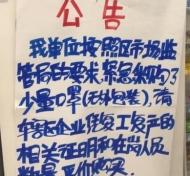 公告
我单位按照区市场监
管局的要求,紧急采购了
少量口罩(无外包装),请
辖区企业凭复工复产的
相关证明和在岗人员
数量平价购买.